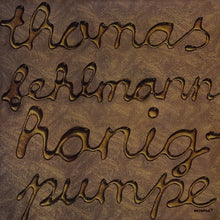 thomas
fehlmann
honig-
pumpe
kompakt